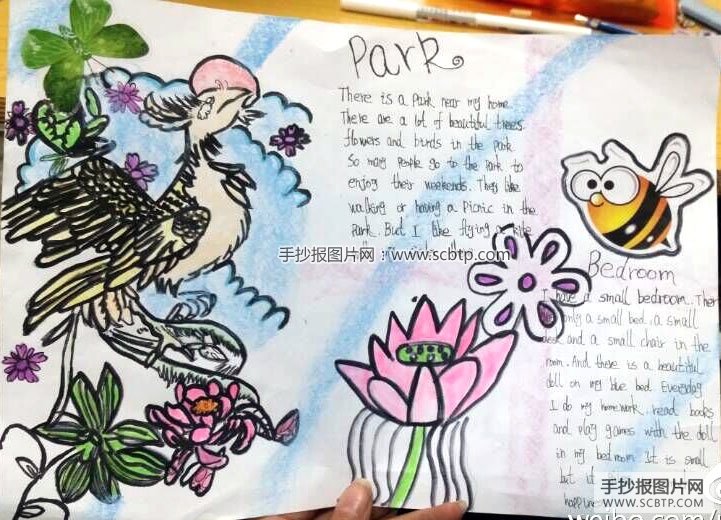 Park
There is a park near my home.
There are a lot of beautiful threes.
flowers and birds in the park
So many people go to the park to
enjoy their weekends. They like
walking or having a picnic in the
park. But I like flying a kite
手抄报图片网:www.scbtp.com
Bedroom
I have a small bedroom. There
only a small bed. a small
desk and a small chair in the
room. And there is a beautiful
doll on my blue bed. Everyday
I do my homework. read books
and play games with the doll
in my bedroom It is small
but it
手抄报图片网
WWW.SCBTP.COM
weibo.com/